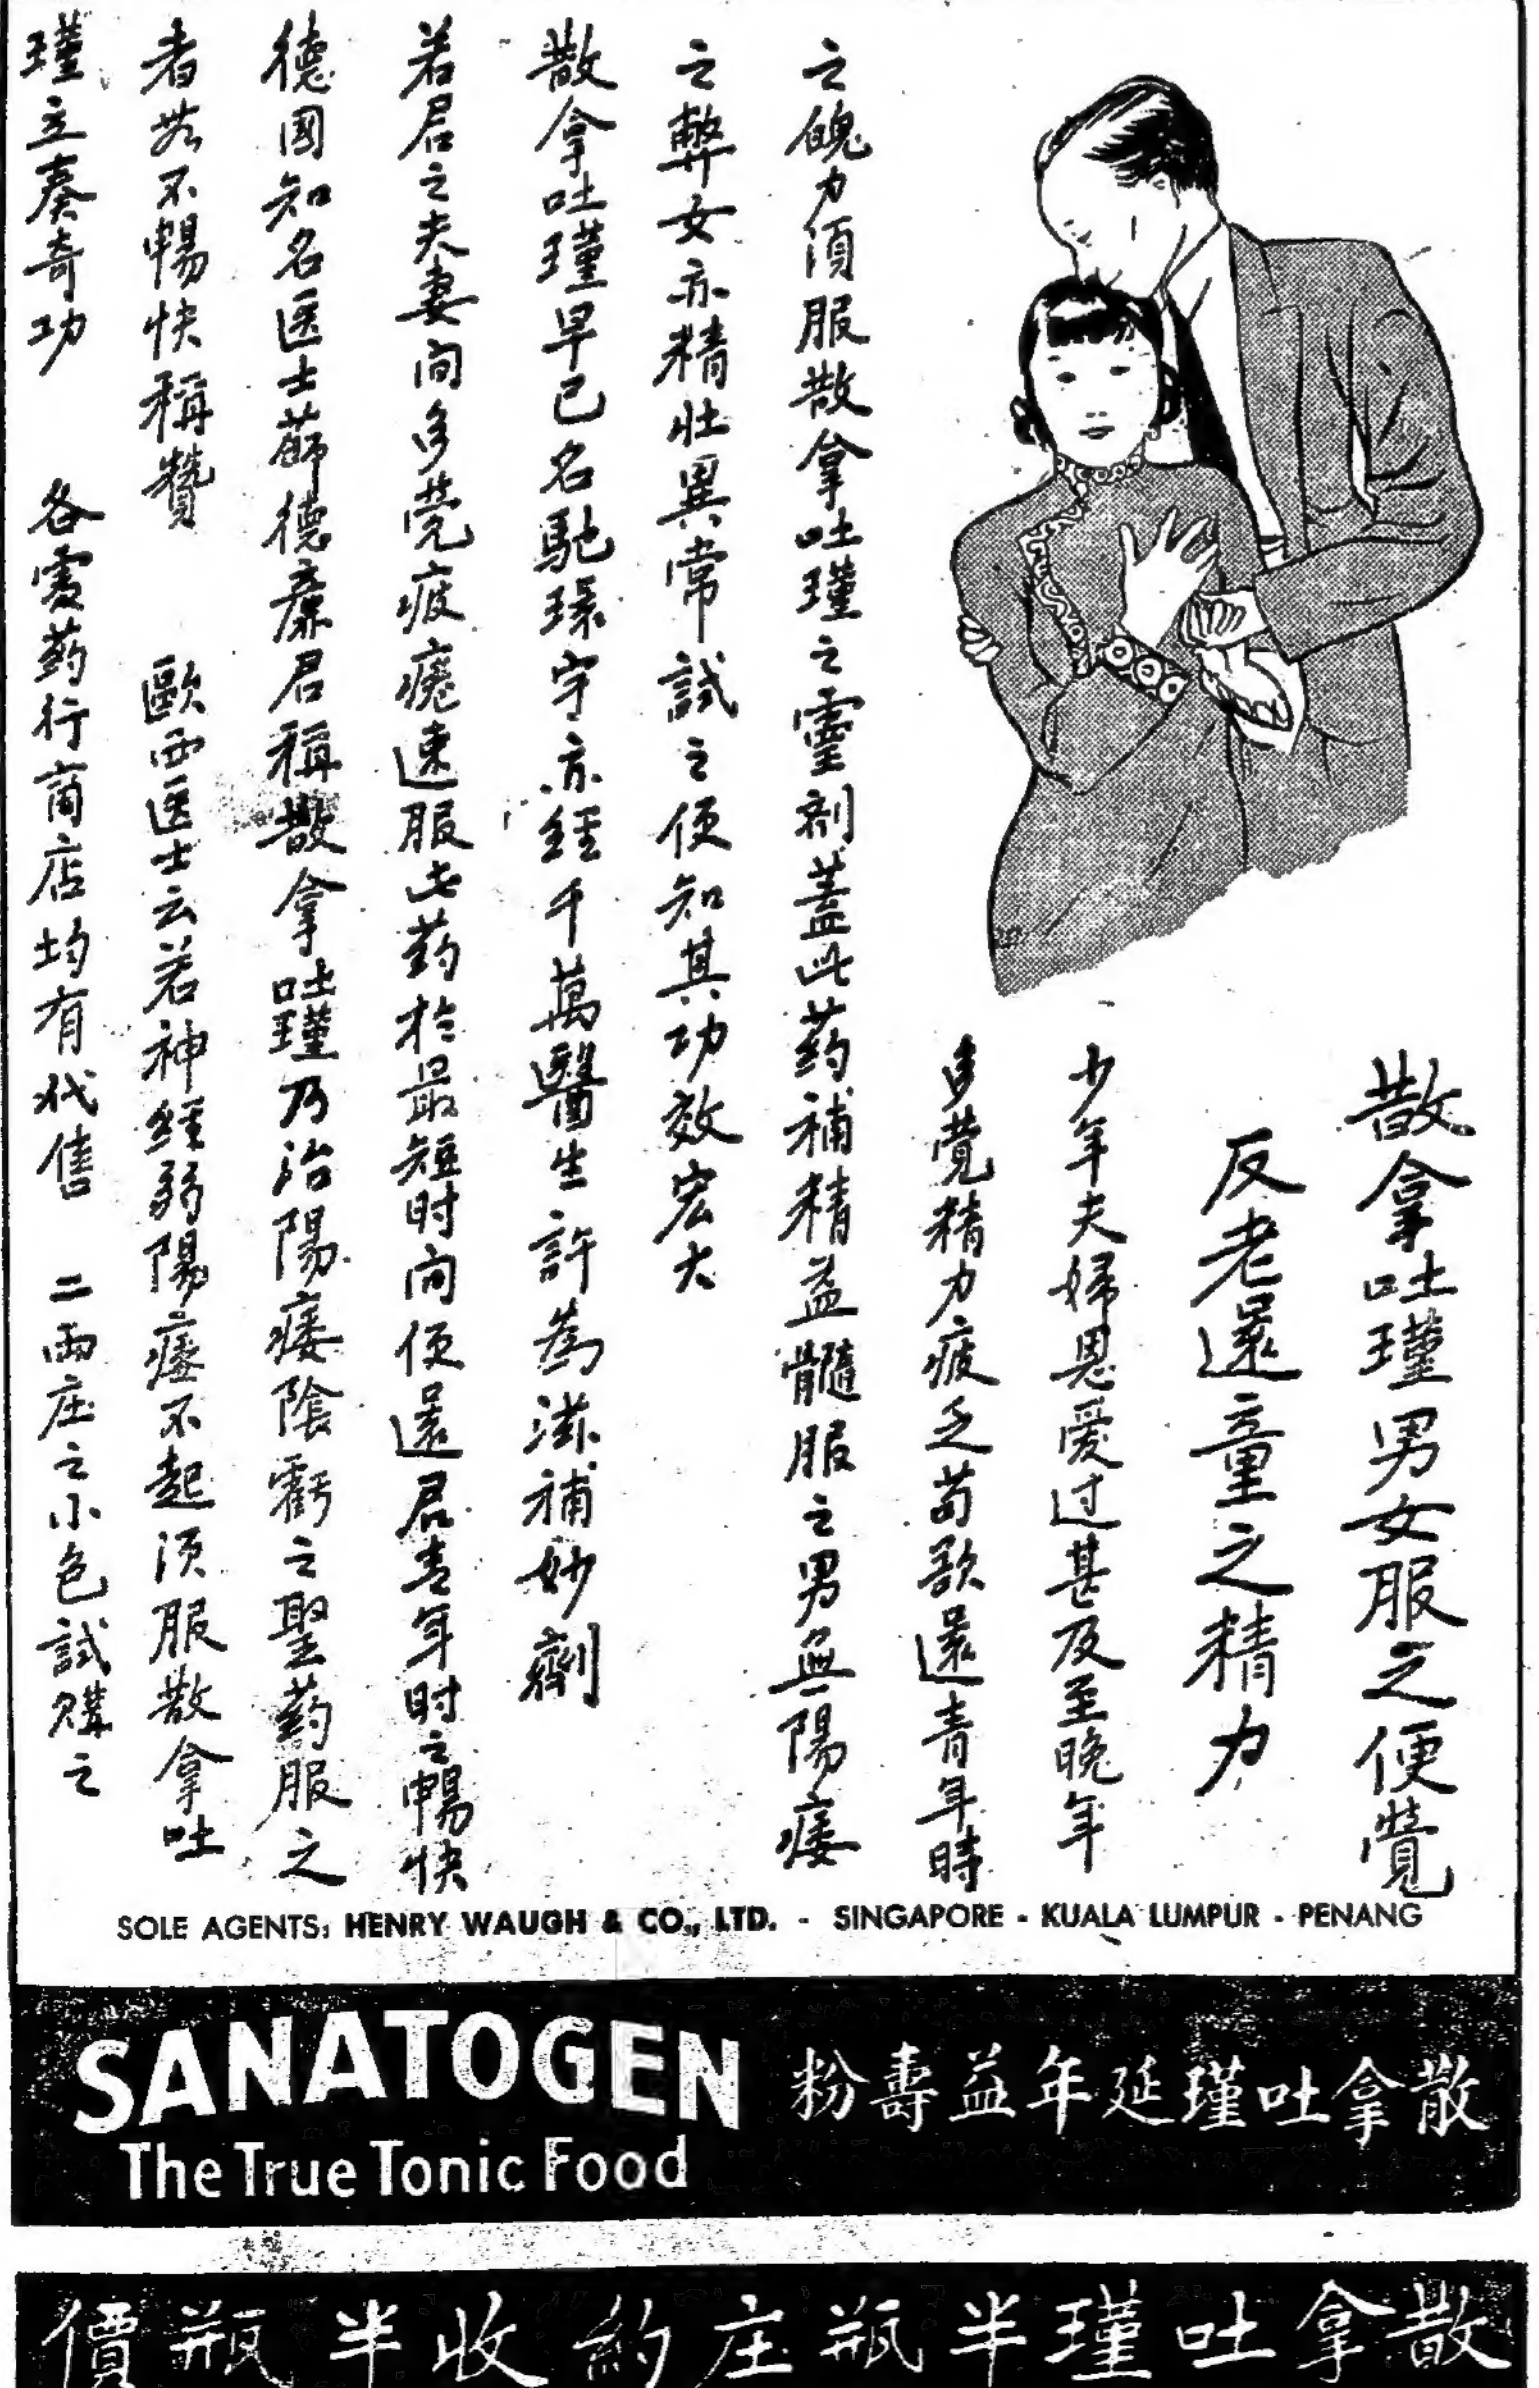 散拿吐瑾男女服之便覺
反老還童之精力
少年夫婦恩愛过甚及至晚年
多覺精力疲乏苟欲還青年時
之魄力須服散拿吐瑾之靈剤蓋此药補精益髓服之男無陽痿
之弊女亦精壯異常試之便知其功效宏大
散拿吐瑾早已名馳環宇亦經千萬醫生許為滋補妙劑
若君之夫妻间多覺疲癃速服此药於最短时间便還君青年时之暢快
德國知名医士蒒德廉君稱散拿吐瑾乃治陽痿陰虧之聖药服之
者無不暢快稱贊 歐西医士云若神經弱陽痿不起須服散拿吐
瑾立奏奇功 各處药行商店均有代售 二兩庄之小包試購之
SOLE AGENTS: HENRY WAUGH & CO., LTD. - SINGAPORE - KUALA LUMPUR - PENANG
SANATOGEN
The True Tonic Food
散拿吐瑾延年益壽粉
散拿吐瑾半瓶庄約收半瓶價